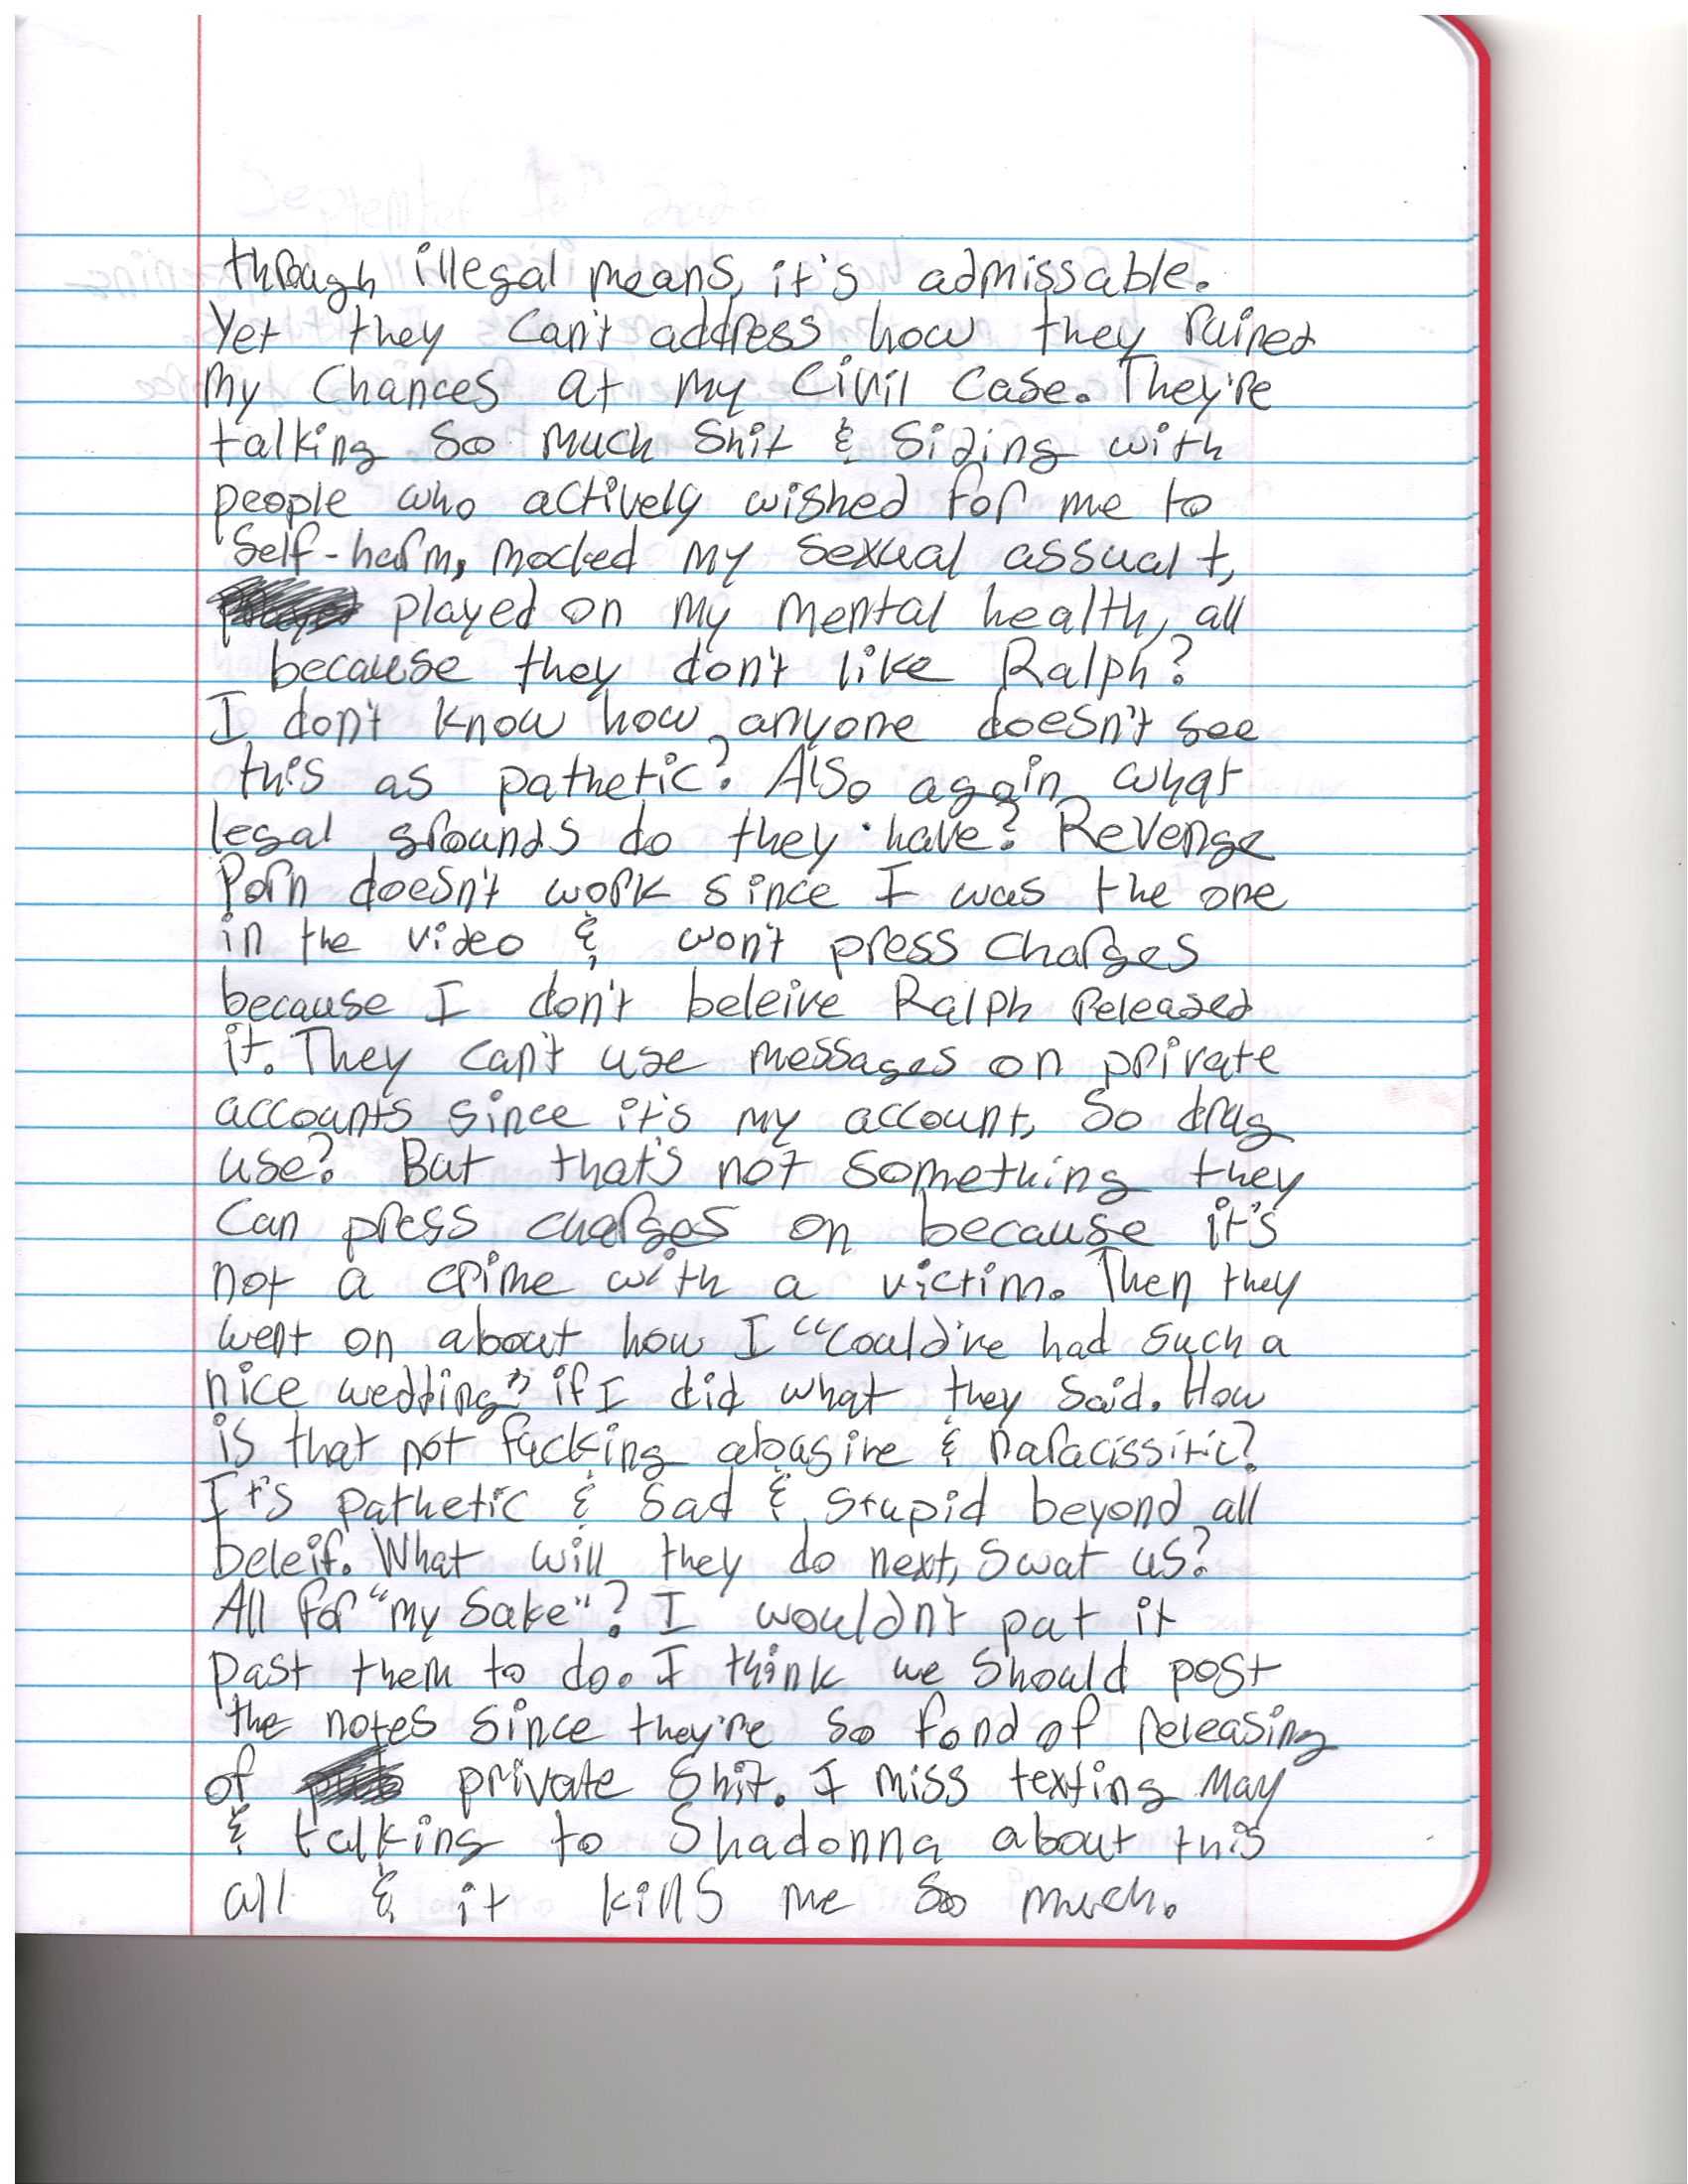 through illegal means, it's admissable.
Yet they can't address how they ruined
my chances at my civil case. They're
talking so much shit & siding with
people who actively wished for me to
self-harm, mocked my sexual assualt,
played on my mental health, all
because they don't like Ralph?
I don't know how anyone doesn't see
this as pathetic? Also again what
legal grounds do they have? Revenge
Porn doesn't work since I was the one
in the video & won't press charges
because I don't beleive Ralph released
it. They can't use messages on private
accounts since it's my account, so drug
use? But that's not something they
can press charges on because it's
not a crime with a victim. Then they
went on about how I "could've had such a
nice wedding" if I did what they said. How
is that not fucking abusive & naracissitic?
It's pathetic & sad & stupid beyond all
beleif. What will they do next, swat us?
All for "my sake"? I wouldn't put it
past them to do. I think we should post
the notes since they're so fond of releasing
of private shit. I miss texting May
& talking to Shadonna about this
all & it kills me so much.